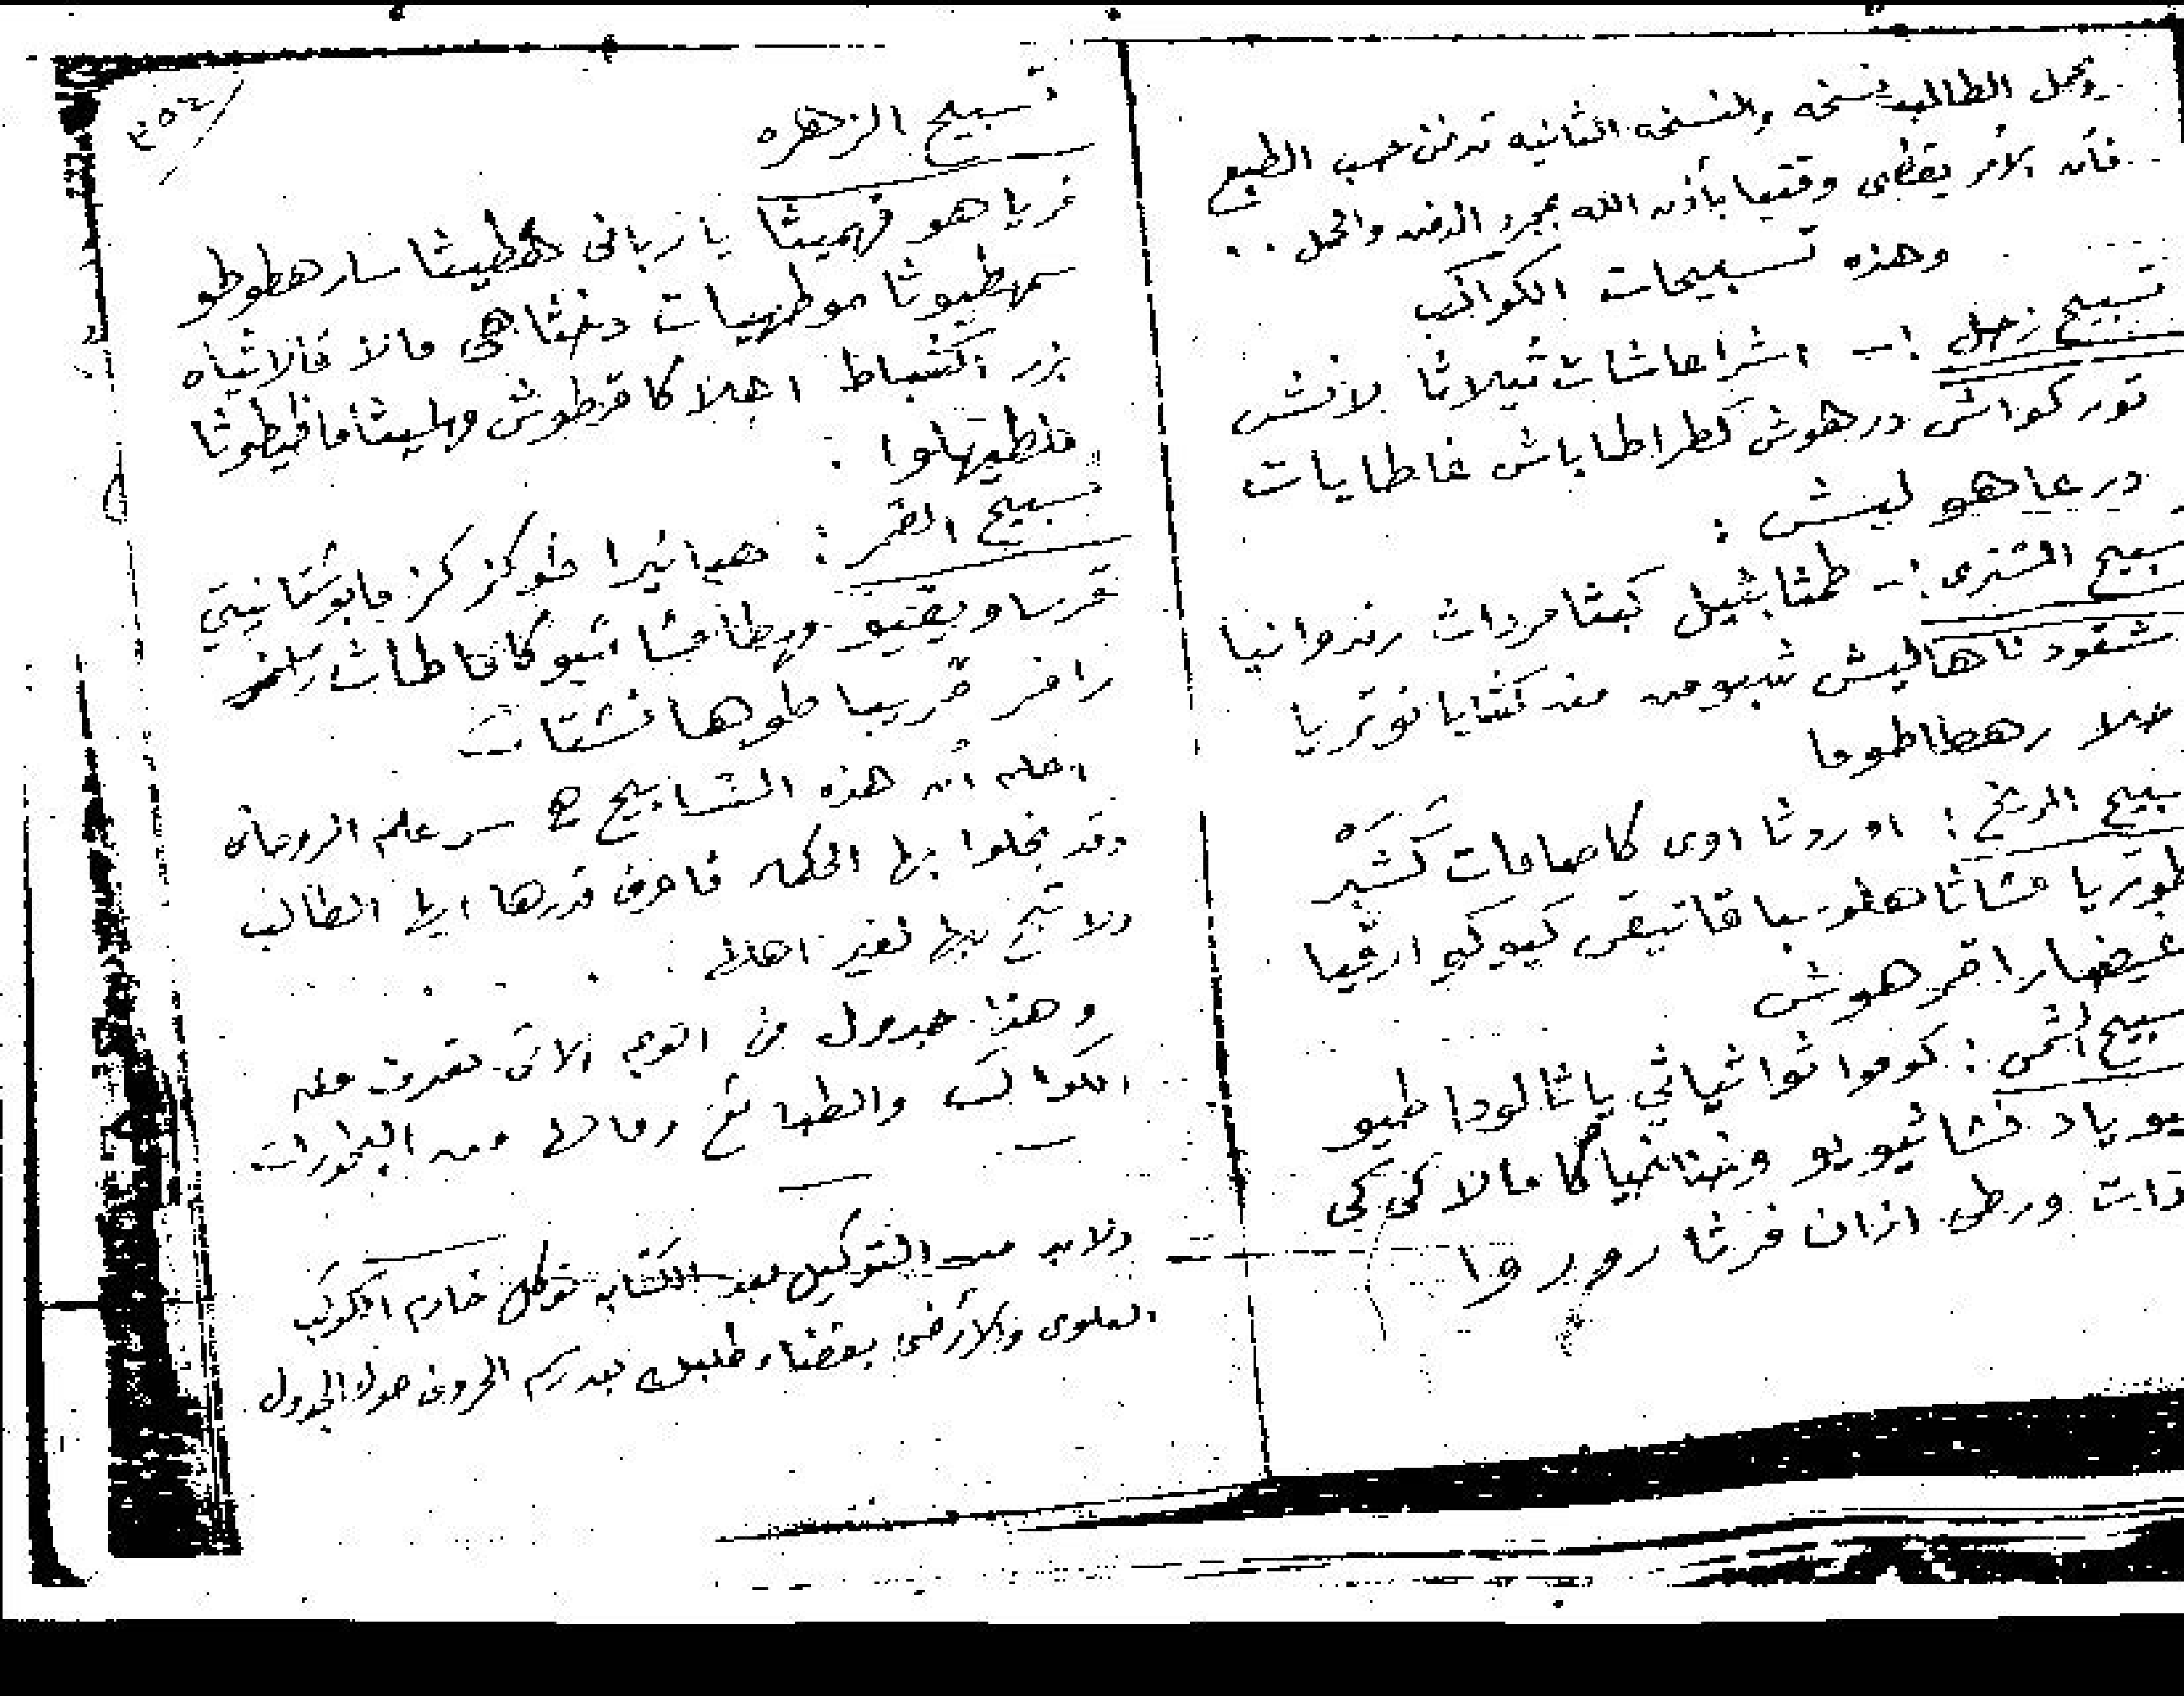 ويحمل الطالب نسخه والنسخه الثانيه تدفن حسب الطبع
فأن الأمر يقظى وقتيا بأذن الله بمجرد الدفن والحمل ..
وهذه تسبيحات الكواكب
تسبيح زحل :- اشرا عاشات ثيلاثا لانش
تور كواش درهوش كطراطا باش غاطايات
درعاهو ليش :
سبيح المشترى :- طمثا بثيل كبثا مردات رندوانيا
شقود ناهاليش شبومن من كثايا نوتريا
هلا رهطاطوما
سبيح المريخ : اوروثا اوى كاصامات كشبره
طوتريا مشاثا هلوسبا قانيقى كيوكبو ارقيا
غيضهارا قرهوش
سبيح الشمس : كوموا ثوا ثياثي ياثا لودا طيو
يو ياد نشا ثيوريو ونهثا نميا كا مالا كى كى
ذات ورطى ازان فرشا رورو وا
٢٥٣
تسبيح الزهره
غرياهو فهميثا يا زبانى هطيثا سار هطوطو
سمهطيوثا موطهيات دغثاهى مالا قالا ثياه
بزر اكشباط اهلا كا قرطوش وهليثا ماقيطوثا
ملطيهلوا :
تسبيح القمر : هيا نيرا طو كز كز مابوشانيتي
قرسا ويقنيو وهطا مشا شيو كا ماطاث
زافر قريبا طوها نشتات
اعلم أن هذه التسابيح هي سر علم الروحانه
وقد بخلوا بها الحكماء فاعرف قدرها ايها الطالب
ولا تبيح بها لغير اهلها . .
وهذا جدول في الوجه الآتى تعرف منه
الكواكب والطبائع ومالها من البخورات
ولابد من التوكيل بعد الكتابه توكل خادم الكوكب
العلوى والأرضى بقضاء طلبك بعد رسم الحروف حول الجدول